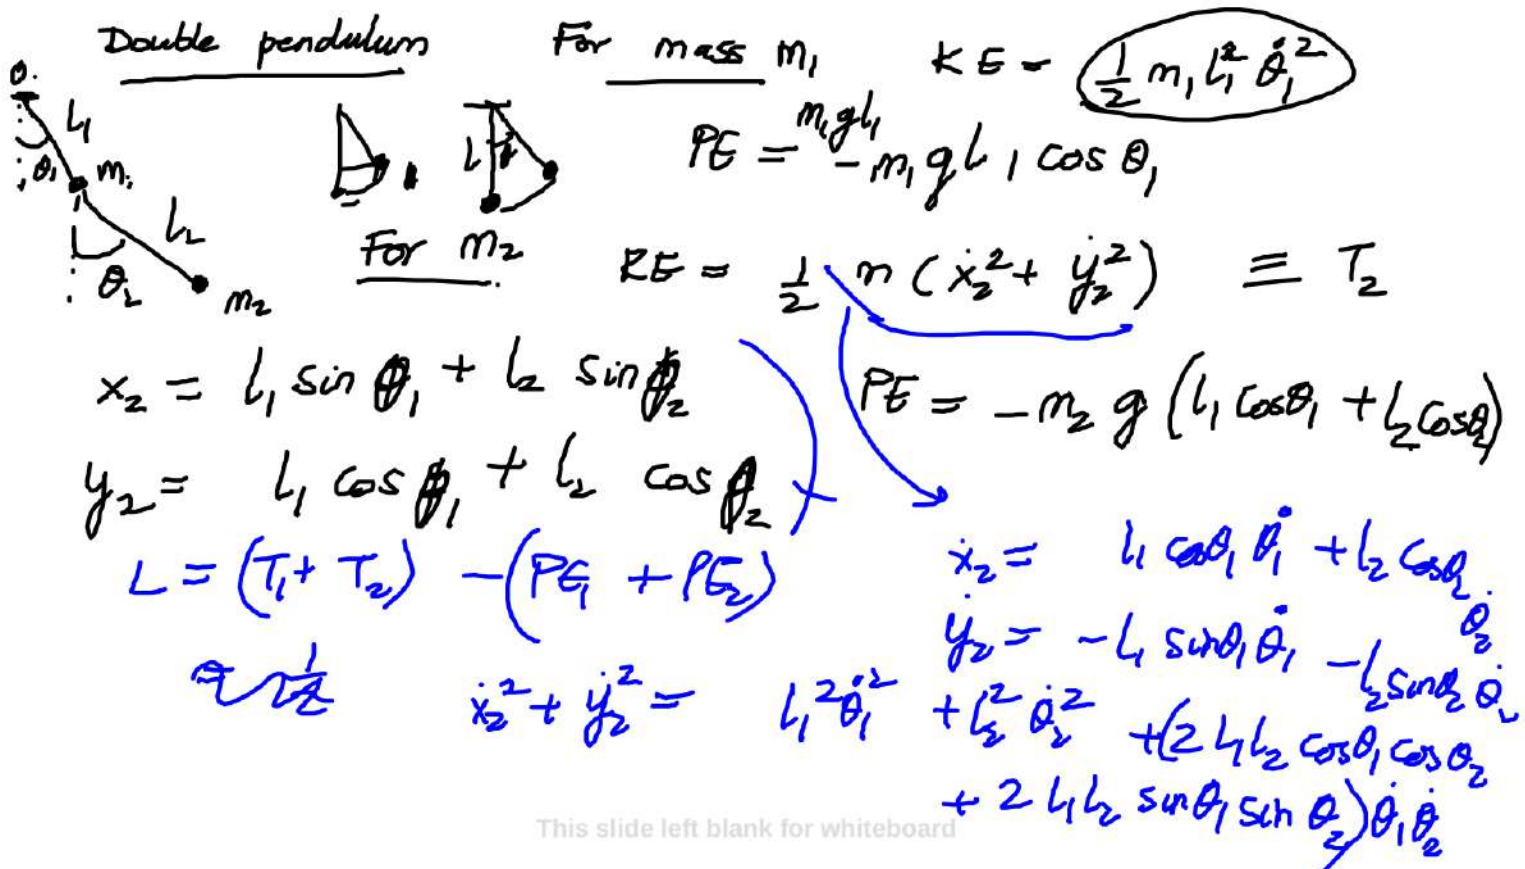 Double pendulum For mass m₁ KE = ½ m₁ l₁² θ̇₁²
O.
l₁
θ₁ m₁
l₂
θ₂ m₂
l
m₁gl₁
PE = - m₁ g l₁ cos θ₁
For m₂ KE = ½ m (ẋ₂² + ẏ₂²) ≡ T₂
x₂ = l₁ sin θ₁ + l₂ sin θ₂
PE = - m₂ g (l₁ cosθ₁ + l₂ cosθ₂)
y₂ = l₁ cos θ₁ + l₂ cos θ₂
L = (T₁ + T₂) - (PE₁ + PE₂)
ẋ₂ = l₁ cosθ₁ θ̇₁ + l₂ cosθ₂ θ̇₂
ẏ₂ = - l₁ sinθ₁ θ̇₁ - l₂ sinθ₂ θ̇₂
ẋ₂² + ẏ₂² = l₁² θ̇₁² + l₂² θ̇₂² + (2 l₁ l₂ cosθ₁ cosθ₂
+ 2 l₁ l₂ sinθ₁ sin θ₂) θ̇₁ θ̇₂
This slide left blank for whiteboard